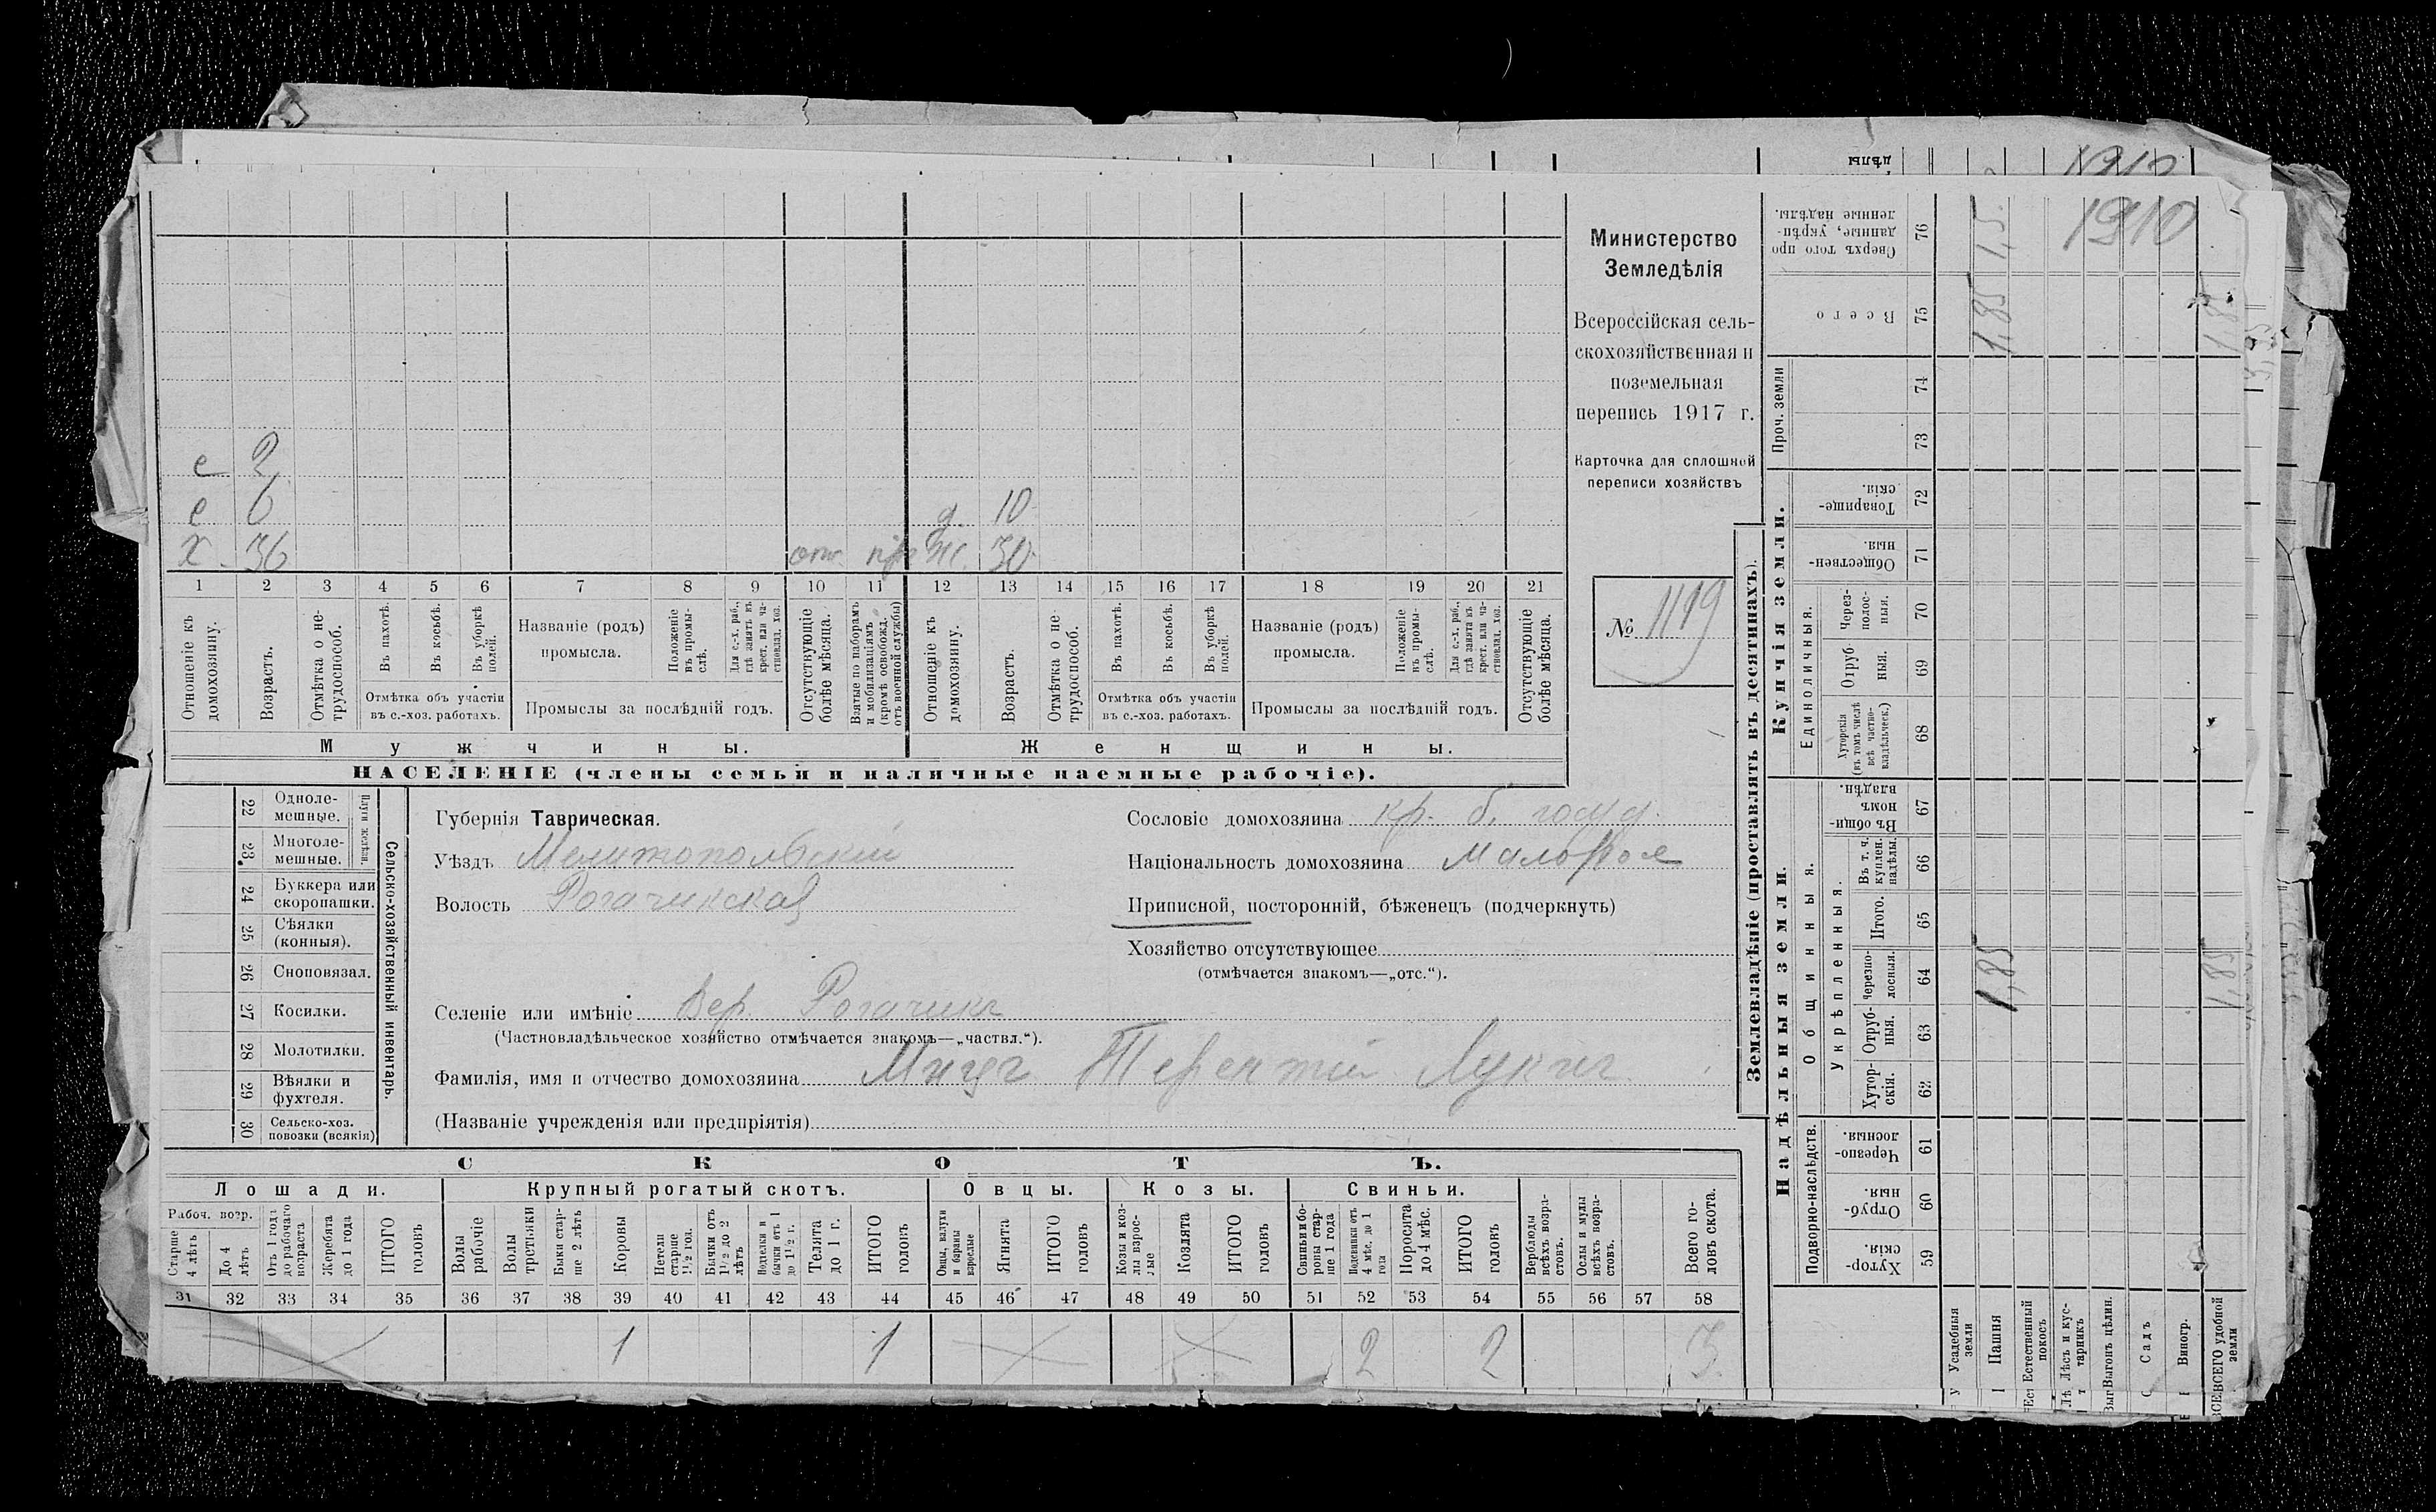 Министерство
Земледѣлія
Всероссійская сель-
скохозяйственная и
поземельная
перепись 1917 г.
Карточка для сплошной
переписи хозяйствъ
№ 1119
е 2
е 6 д. 10
х 36 отс. ж. 30
1 2 3 4 5 6 7 8 9 10 11 12 13 14 15 16 17 18 19 20 21
Отношеніе къ домохозяину.
Возрастъ.
Отмѣтка о не-трудоспособ.
Въ пахотѣ.
Въ косьбѣ.
Въ уборкѣ полей.
Отмѣтка объ участіи
въ с.-хоз. работахъ.
Названіе (родъ)
промысла.
Положеніе въ промы-слѣ.
Для с.-х. раб., гдѣ занятъ въ крест. или ча-стновлад. хоз.
Промыслы за послѣдній годъ.
Отсутствующіе болѣе мѣсяца.
Взятые по наборамъ и мобилизаціямъ (кромѣ освобожд. отъ военной службы)
Отношеніе къ домохозяину.
Возрастъ.
Отмѣтка о не трудоспособ.
Въ пахотѣ.
Въ косьбѣ.
Въ уборкѣ полей.
Отмѣтка объ участіи
въ с.-хоз. работахъ.
Названіе (родъ)
промысла.
Положеніе въ промы-слѣ.
Для с.-х. раб., гдѣ занята въ крест. или ча-стновлад. хоз.
Промыслы за послѣдній годъ.
Отсутствующіе болѣе мѣсяца.
Мужчины. Женщины.
НАСЕЛЕНІЕ (члены семьи и наличные наемные рабочіе).
22 Одноле-мешные.
23 Многоле-мешные.
Плуги желѣзн.
24 Буккера или скоропашки.
25 Сѣялки (конныя).
26 Сноповязал.
27 Косилки.
28 Молотилки.
29 Вѣялки и фухтеля.
30 Сельско-хоз. повозки (всякія)
Сельско-хозяйственный инвентарь.
Губернія Таврическая.
Уѣздъ Мелитопольскій
Волость Рогачикская
Селеніе или имѣніе Вер. Рогачикъ
(Частновладѣльческое хозяйство отмѣчается знакомъ—„частвл.“).
Фамилія, имя и отчество домохозяина Терентій Лукичъ
(Названіе учрежденія или предпріятія)
Сословіе домохозяина кр. б.
Національность домохозяина Малорос
Приписной, посторонній, бѣженецъ (подчеркнуть)
Хозяйство отсутствующее
(отмѣчается знакомъ—„отс.“).
СКОТЪ.
Лошади. Крупный рогатый скотъ. Овцы. Козы. Свиньи.
Рабоч. возр.
Старше 4 лѣтъ
До 4 лѣтъ
Отъ 1 года до рабочаго возраста
Жеребята до 1 года
ИТОГО головъ
Волы рабочіе
Волы третьяки
Быки стар-ше 2 лѣтъ
Коровы
Нетели старше 1½ год.
Бычки отъ 1½ до 2 лѣтъ
Подтелки и бычки отъ 1 до 1½ г.
Телята до 1 г.
ИТОГО головъ
Овцы, валухи и бараны взрослые
Ягнята
ИТОГО головъ
Козы и коз-лы взрос-лые
Козлята
ИТОГО головъ
Свиньи и бо-ровы стар-ше 1 года
Подсвинки отъ 4 мѣс. до 1 года
Поросята до 4 мѣс.
ИТОГО головъ
Верблюды всѣхъ возра-стовъ.
Ослы и мулы всѣхъ возра-стовъ.
Всего го-ловъ скота.
31 32 33 34 35 36 37 38 39 40 41 42 43 44 45 46 47 48 49 50 51 52 53 54 55 56 57 58
1 1 2 2 3
Землевладѣніе (проставлять въ десятинахъ).
Надѣльныя земли. Купчія земли.
Подворно-наслѣдств.
Хутор-скія. 59
Отруб-ныя. 60
Черезпо-лосныя. 61
Общинныя.
Укрѣпленныя.
Хутор-скія. 62
Отруб-ныя. 63
Черезпо-лосныя. 64
Итого. 65
Въ т. ч. куплен. надѣлы. 66
Въ общи-номъ владѣн. 67
Единоличныя.
Хуторскія (въ томъ числѣ всѣ частно-владѣльческ.) 68
Отруб-ныя. 69
Через-полос-ныя. 70
Обществен-ныя. 71
Товарище-скія. 72
Проч. земли
73 74
Всего 75
Сверхъ того про-данные, укрѣп-ленные надѣлы. 76
Усадебныя земли
Пашня 1,85 1,85 1,5
Естественный покосъ
Лѣсъ и кус-тарникъ
Выгонъ цѣлин.
Садъ
Виногр.
ВСЕГО удобной земли 1,85 1,85
1910